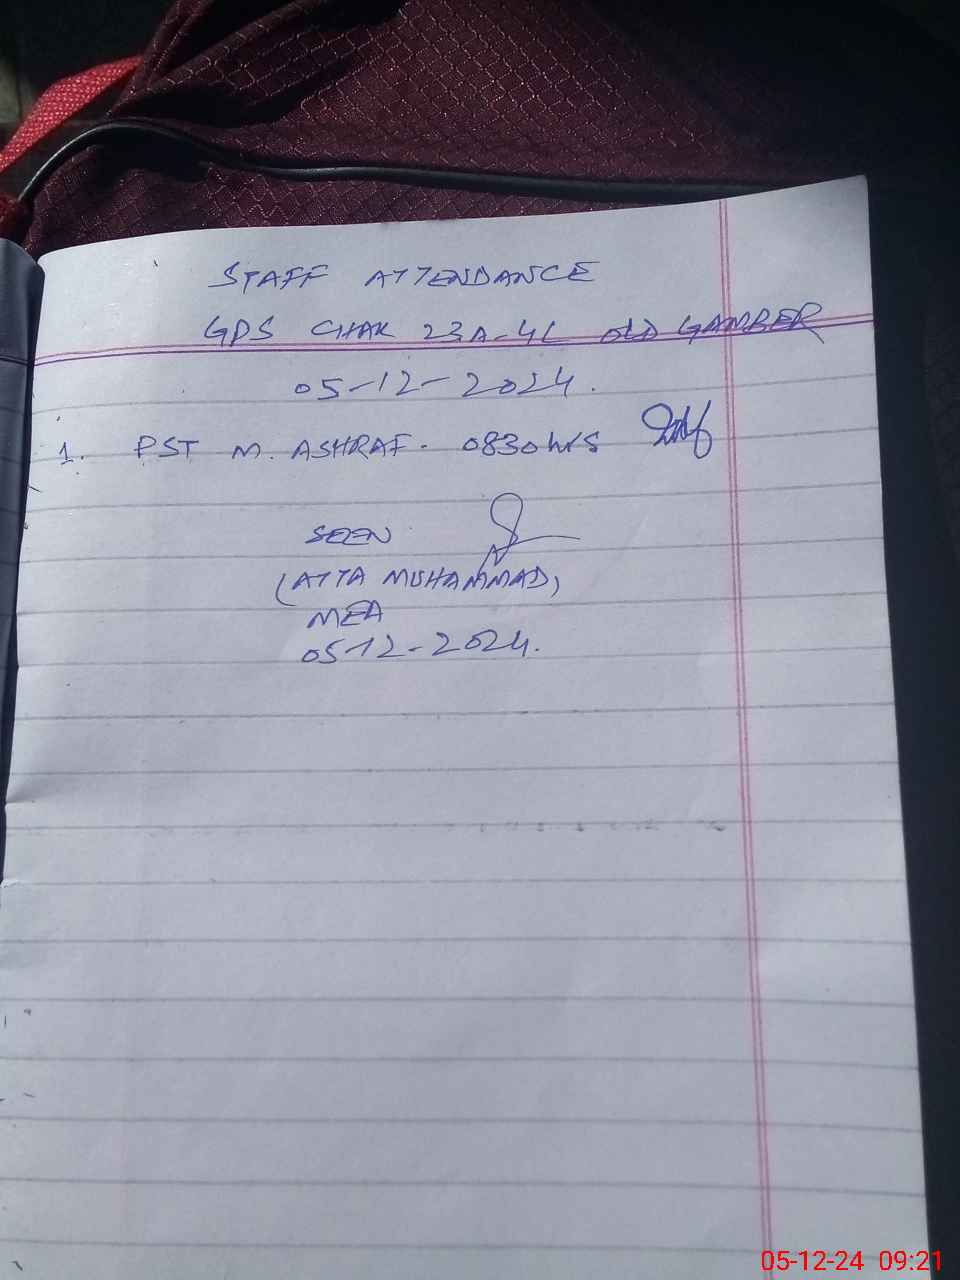 STAFF ATTENDANCE
GPS CHAK 23A-4L OLD GAMBER
05-12-2024.
1. PST M. ASHRAF. 0830hrs
SEEN
(ATTA MUHAMMAD)
MEA
05-12-2024.
05-12-24 09:21